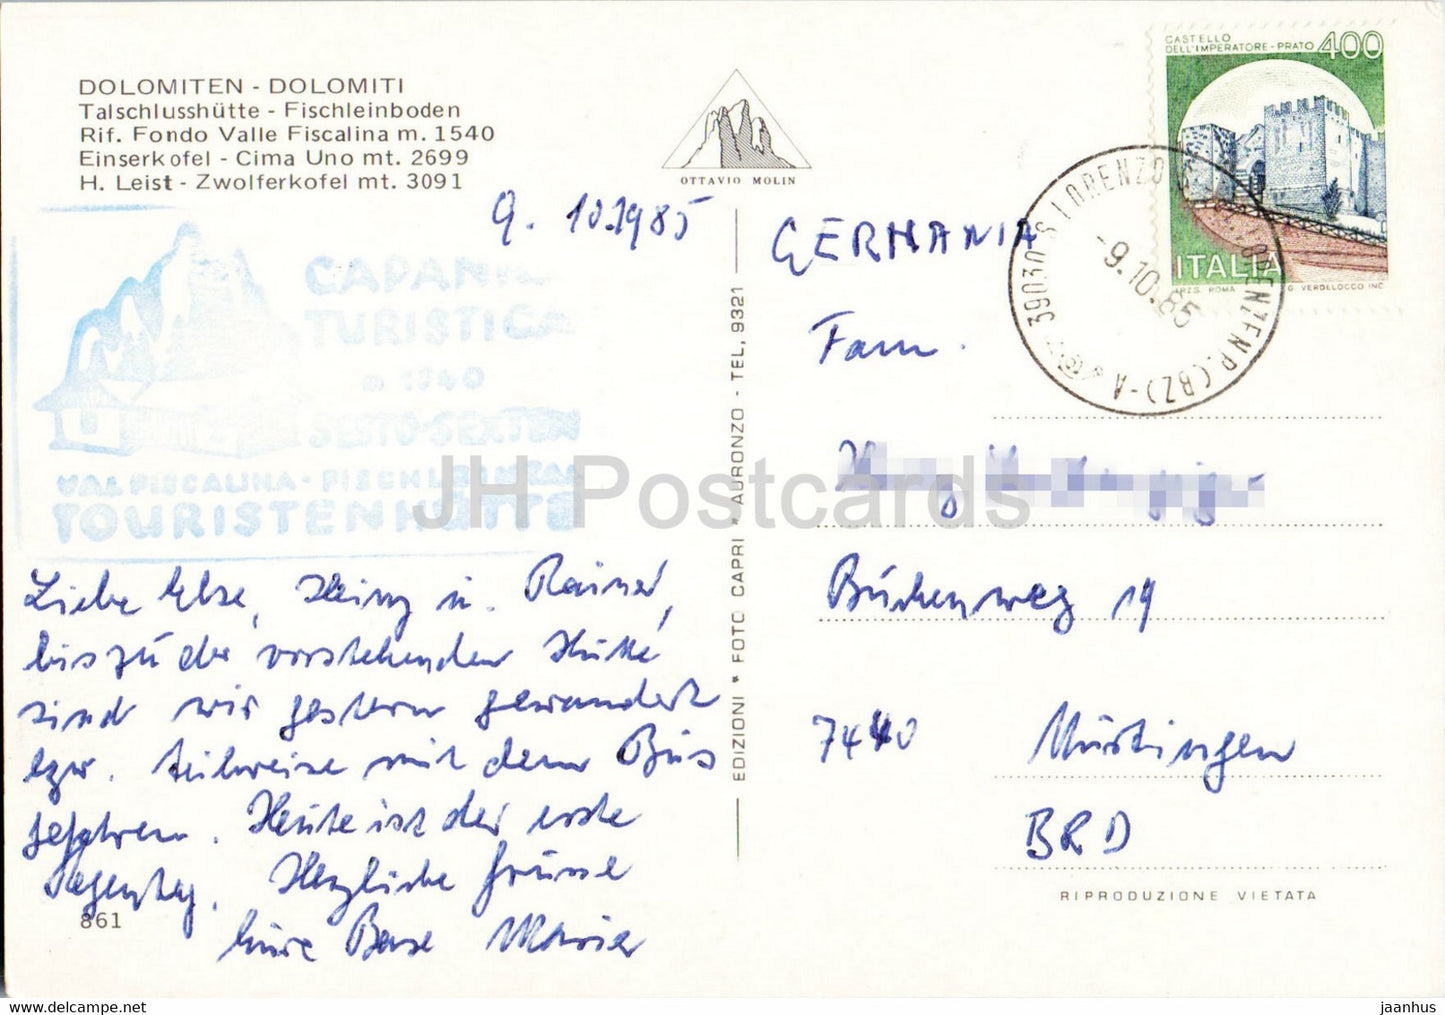 DOLOMITEN - DOLOMITI
Talschlusshütte - Fischleinboden
Rif. Fondo Valle Fiscalina m. 1540
Einserkofel - Cima Uno mt. 2699
H. Leist - Zwolferkofel mt. 3091
OTTAVIO MOLIN
CASTELLO
DELL'IMPERATORE - PRATO 400
ITALIA
I.P.Z.S. ROMA G. VERDELOCCO INC.
39030 S. LORENZO
-9.10.85
LORENZEN P. (BZ) - A
CAPANNA
TURISTICA
m 1540
SESTO-SEXTEN
VAL FISCALINA - FISCHLEINTAL
TOURISTENHÜTTE
9. 10.1985
Liebe Else, Heinz u. Rainer,
bis zu der vorstehenden Hütte
sind wir gestern gewandert
bzw. teilweise mit dem Bus
gefahren. Heute ist der erste
Regentag. Herzliche Grüsse
Eure Base Maria
861
EDIZIONI * FOTO CAPRI * AURONZO - TEL, 9321
GERMANIA
Fam.
Büchenweg 19
7440 Nürtingen
BRD
RIPRODUZIONE VIETATA
JH Postcards
www.delcampe.net
jaanhus